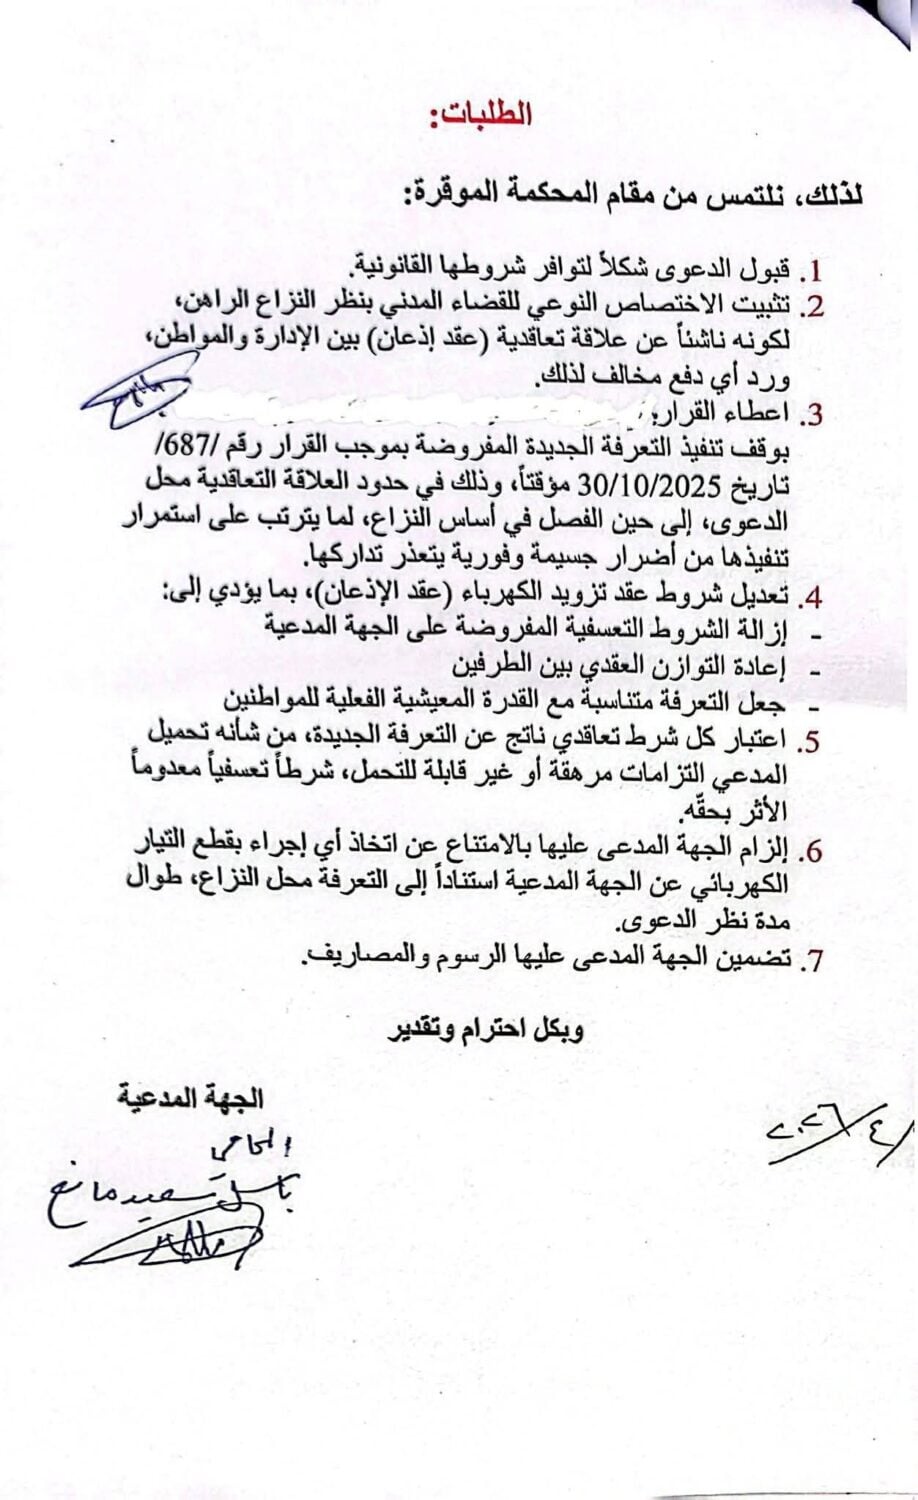 الطلبات:
لذلك، نلتمس من مقام المحكمة الموقرة:
1. قبول الدعوى شكلاً لتوافر شروطها القانونية.
2. تثبيت الاختصاص النوعي للقضاء المدني بنظر النزاع الراهن،
لكونه ناشئاً عن علاقة تعاقدية (عقد إذعان) بين الإدارة والمواطن،
ورد أي دفع مخالف لذلك.
3. اعطاء القرار؛
بوقف تنفيذ التعرفة الجديدة المفروضة بموجب القرار رقم /687/
تاريخ 30/10/2025 مؤقتاً، وذلك في حدود العلاقة التعاقدية محل
الدعوى، إلى حين الفصل في أساس النزاع، لما يترتب على استمرار
تنفيذها من أضرار جسيمة وفورية يتعذر تداركها.
4. تعديل شروط عقد تزويد الكهرباء (عقد الإذعان)، بما يؤدي إلى:
- إزالة الشروط التعسفية المفروضة على الجهة المدعية
- إعادة التوازن العقدي بين الطرفين
- جعل التعرفة متناسبة مع القدرة المعيشية الفعلية للمواطنين
5. اعتبار كل شرط تعاقدي ناتج عن التعرفة الجديدة، من شأنه تحميل
المدعي التزامات مرهقة أو غير قابلة للتحمل، شرطاً تعسفياً معدوماً
الأثر بحقّه.
6. إلزام الجهة المدعى عليها بالامتناع عن اتخاذ أي إجراء بقطع التيار
الكهربائي عن الجهة المدعية استناداً إلى التعرفة محل النزاع، طوال
مدة نظر الدعوى.
7. تضمين الجهة المدعى عليها الرسوم والمصاريف.
وبكل احترام وتقدير
الجهة المدعية
المحامي
باسل سعيد مانع
/٤/٢٠٢٦